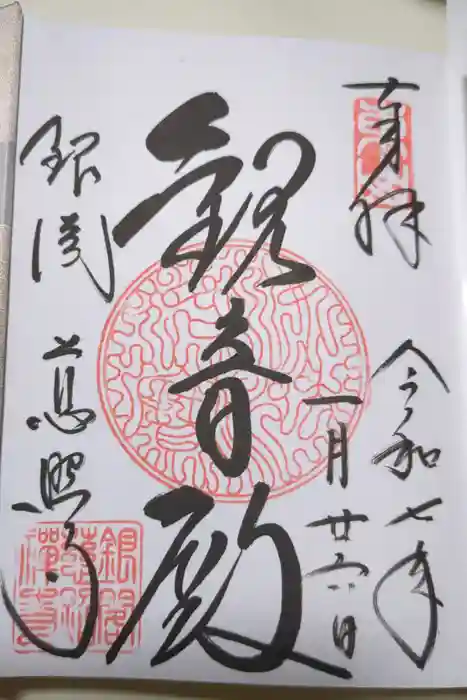 奉拝
令和七年
一月廿六日
觀音殿
銀閣
慈照寺
銀閣
慈照
禅寺